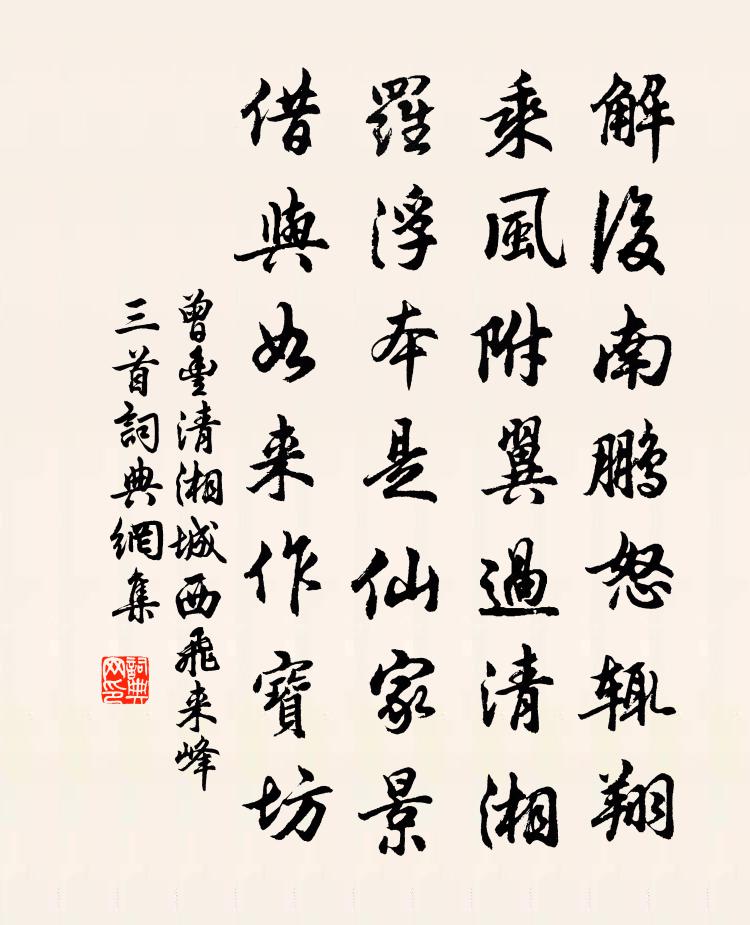 解後南鹏怒辄翔
乘風附翼過清湘
羅浮本是仙家景
借與如来作寶坊
曾豊清湘城西飛来峰
三首詞典網集
詞典网印